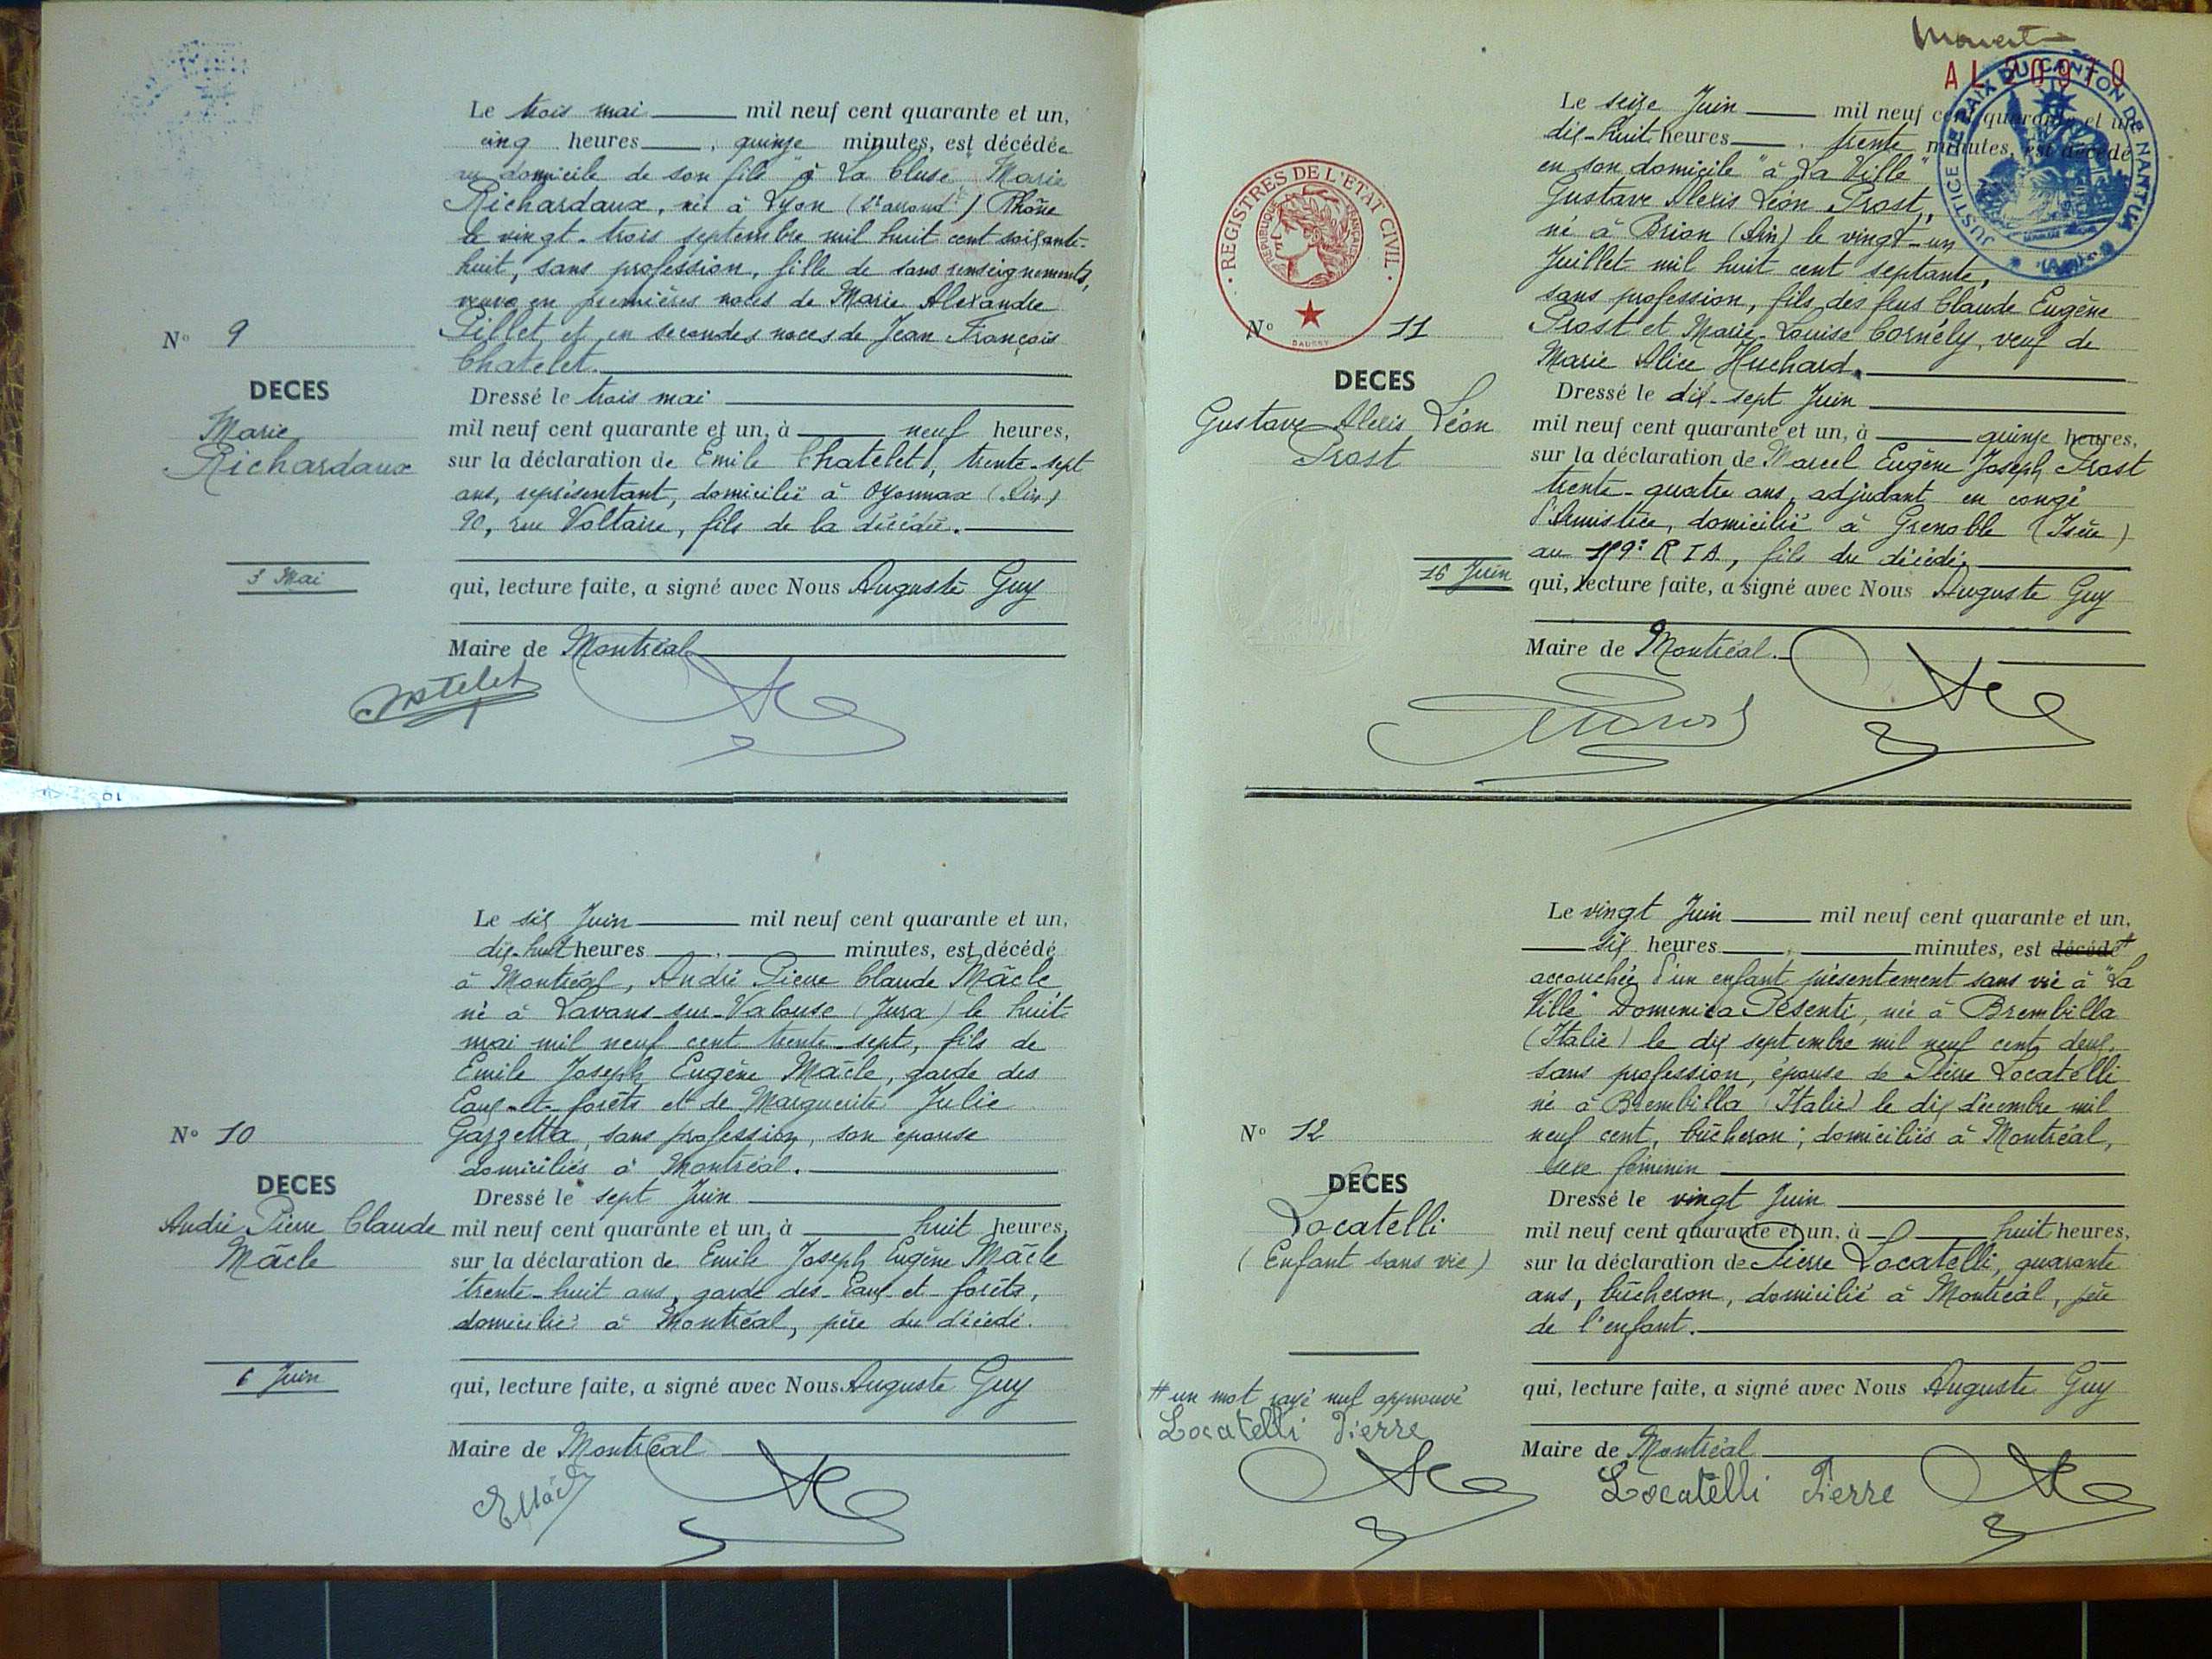 Le trois mai mil neuf cent quarante et un,
cinq heures, quinze minutes, est décédée
au domicile de son fils "à La Cluse" Marie
Richardaux, née à Lyon (2e arrond.t) Rhône
le vingt-trois septembre mil huit cent soixante-
huit, sans profession, fille de sans renseignements,
veuve en premières noces de Marie Alexandre
Pillet, et en secondes noces de Jean François
Chatelet.
N° 9
DECES
Marie
Richardaux
Dressé le trois mai
mil neuf cent quarante et un, à neuf heures,
sur la déclaration de Emile Chatelet, trente-sept
ans, représentant, domicilié à Oyonnax (Ain)
90, rue Voltaire, fils de la décédée.
3 Mai
qui, lecture faite, a signé avec Nous Auguste Guy
Maire de Montréal
Le six Juin mil neuf cent quarante et un,
dix-huit heures, minutes, est décédé
à Montréal, André Pierre Claude Mâcle
né à Lavans-sur-Valouse (Jura) le huit
mai mil neuf cent trente-sept, fils de
Emile Joseph Eugène Mâcle, garde des
Eaux-et-forêts et de Marguerite Julie
Gazzetta, sans profession, son épouse
domiciliés à Montréal.
N° 10
DECES
André Pierre Claude
Mâcle
Dressé le sept Juin
mil neuf cent quarante et un, à huit heures,
sur la déclaration de Emile Joseph Eugène Mâcle
trente-huit ans, garde des-Eaux-et-forêts,
domicilié à Montréal, père du décédé.
6 Juin
qui, lecture faite, a signé avec Nous Auguste Guy
Maire de Montréal
AL 20970
JUSTICE DE PAIX DU CANTON DE NANTUA
(AIN)
REGISTRES DE L'ETAT CIVIL
REPUBLIQUE FRANCAISE
DAUSSY
Le seize Juin mil neuf cent quarante et un
dix-huit heures, trente minutes, est décédé
en son domicile "à La Ville"
Gustave Alexis Léon Prost,
né à Brion (Ain) le vingt-un
Juillet mil huit cent septante,
sans profession, fils des feus Claude Eugène
Prost et Marie-Louise Cornély, veuf de
Marie Alice Huchard.
N° 11
DECES
Gustave Alexis Léon
Prost
Dressé le dix-sept Juin
mil neuf cent quarante et un, à quinze heures,
sur la déclaration de Marcel Eugène Joseph Prost
trente-quatre ans, adjudant en congé
d'Armistice, domicilié à Grenoble (Isère)
au R T A, fils du décédé.
16 Juin
qui, lecture faite, a signé avec Nous Auguste Guy
Maire de Montréal.
Le vingt Juin mil neuf cent quarante et un,
six heures, minutes, est décédé #
accouchée d'un enfant présentement sans vie à "La
Ville" Domenica Pesenti, née à Brembilla
(Italie) le dix septembre mil neuf cent deux,
sans profession, épouse de Pierre Locatelli
né à Brembilla (Italie) le dix décembre mil
neuf cent, bûcheron; domiciliés à Montréal,
sexe féminin
N° 12
DECES
Locatelli
(Enfant sans vie)
Dressé le vingt Juin
mil neuf cent quarante et un, à huit heures,
sur la déclaration de Pierre Locatelli, quarante
ans, bûcheron, domicilié à Montréal, père
de l'enfant.
# un mot rayé nul approuvé
Locatelli Pierre
qui, lecture faite, a signé avec Nous Auguste Guy
Maire de Montréal
Locatelli Pierre